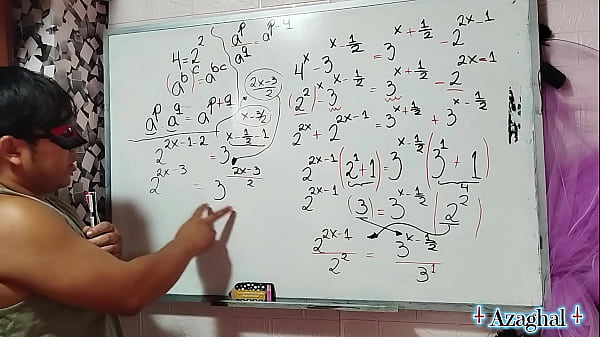 4 = 2^2
(a^b)^c = a^bc
a^p/a^q = a^p-q
a^p a^q = a^p+q
2x-3/2
x-3/2
2^2x-1-2 = 3^x-1/2-1
2^2x-3 = 3^2x-3/2
4^x - 3^x-1/2 = 3^x+1/2 - 2^2x-1
(2^2)^x - 3^x-1/2 = 3^x+1/2 - 2^2x-1
2^2x + 2^2x-1 = 3^x+1/2 + 3^x-1/2
2^2x-1 (2^1+1) = 3^x-1/2 (3^1+1)
4
2^2x-1 (3) = 3^x-1/2 (2^2)
2^2x-1/2^2 = 3^x-1/2/3^1
Azaghal